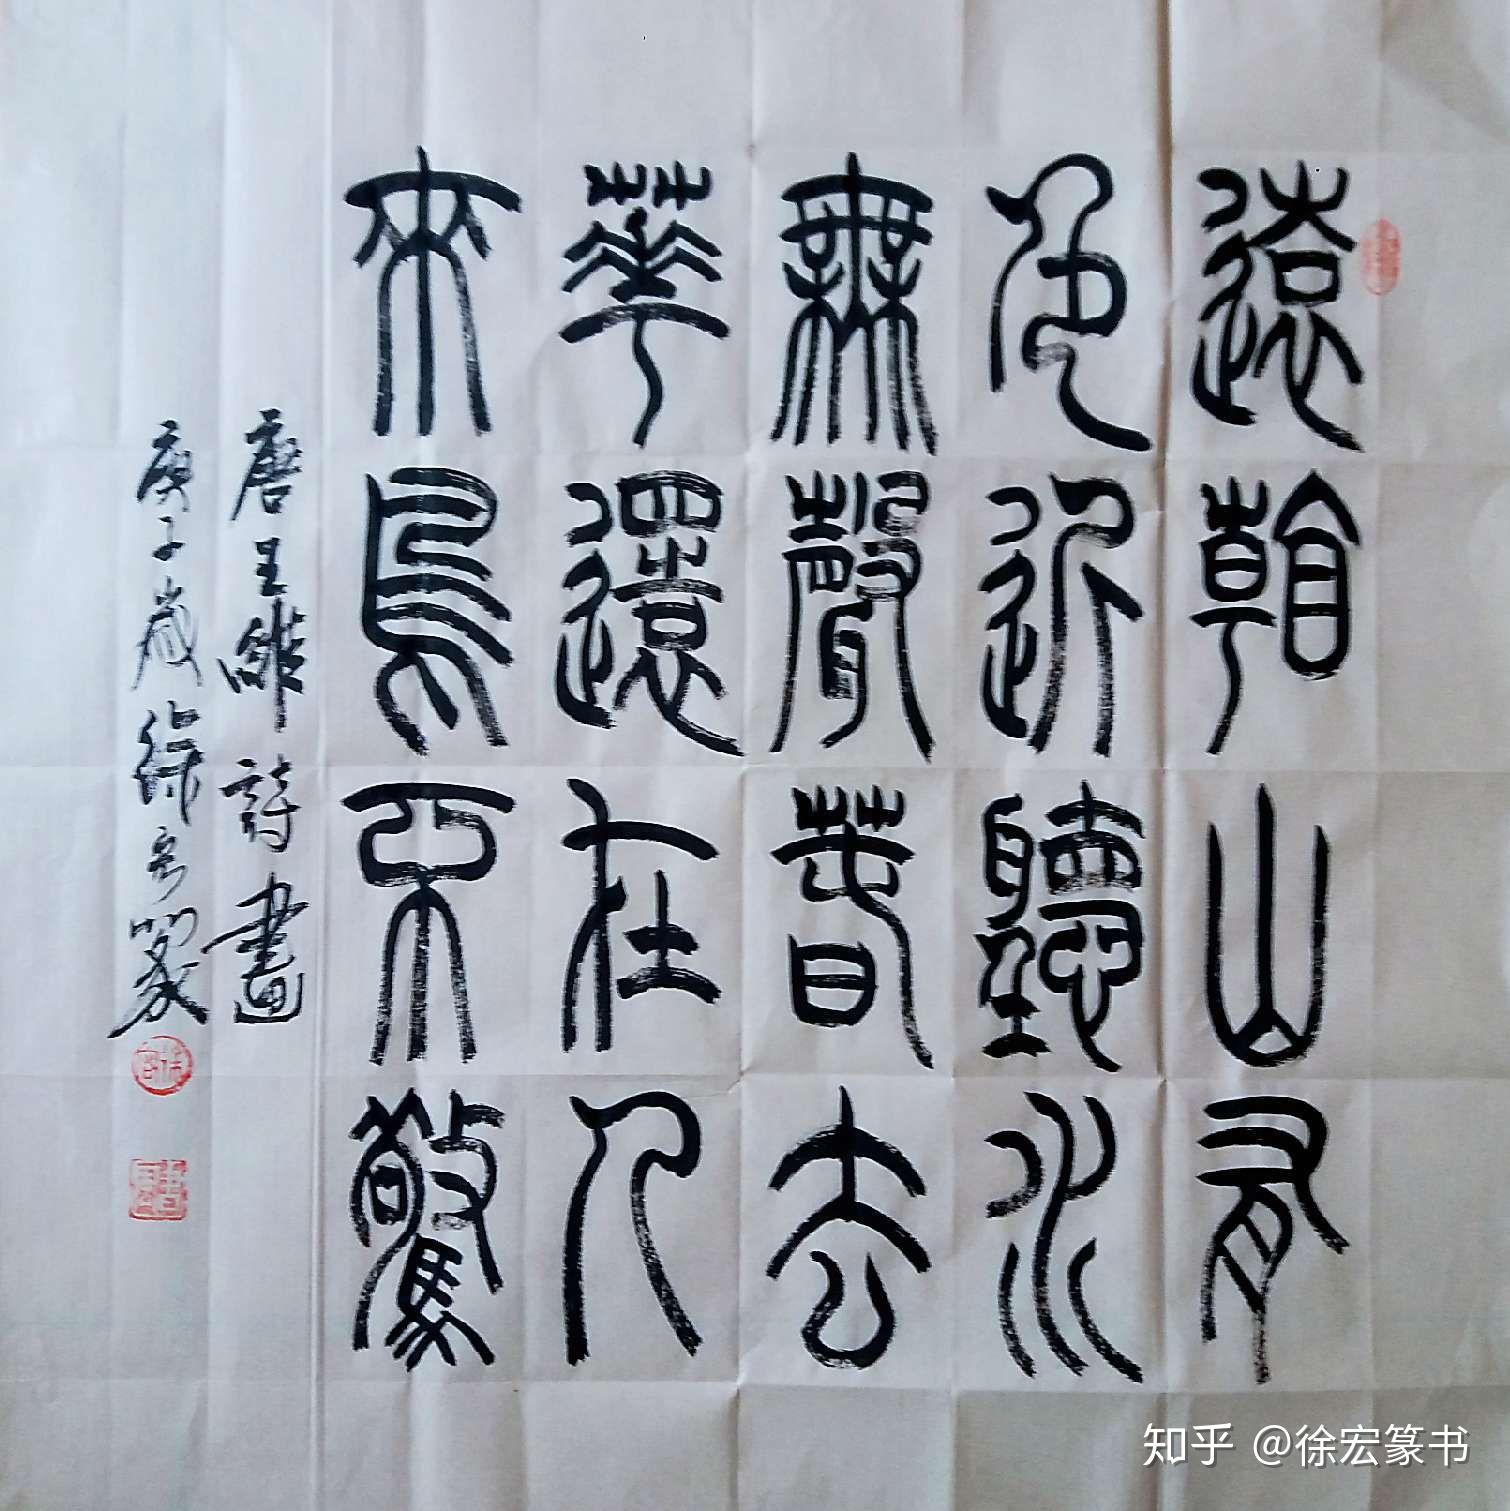 遠看山有
色近聽水
無聲春去
華還在人
來鳥不驚
唐王維詩畫
庚子歲徐宏篆
知乎 @徐宏篆书